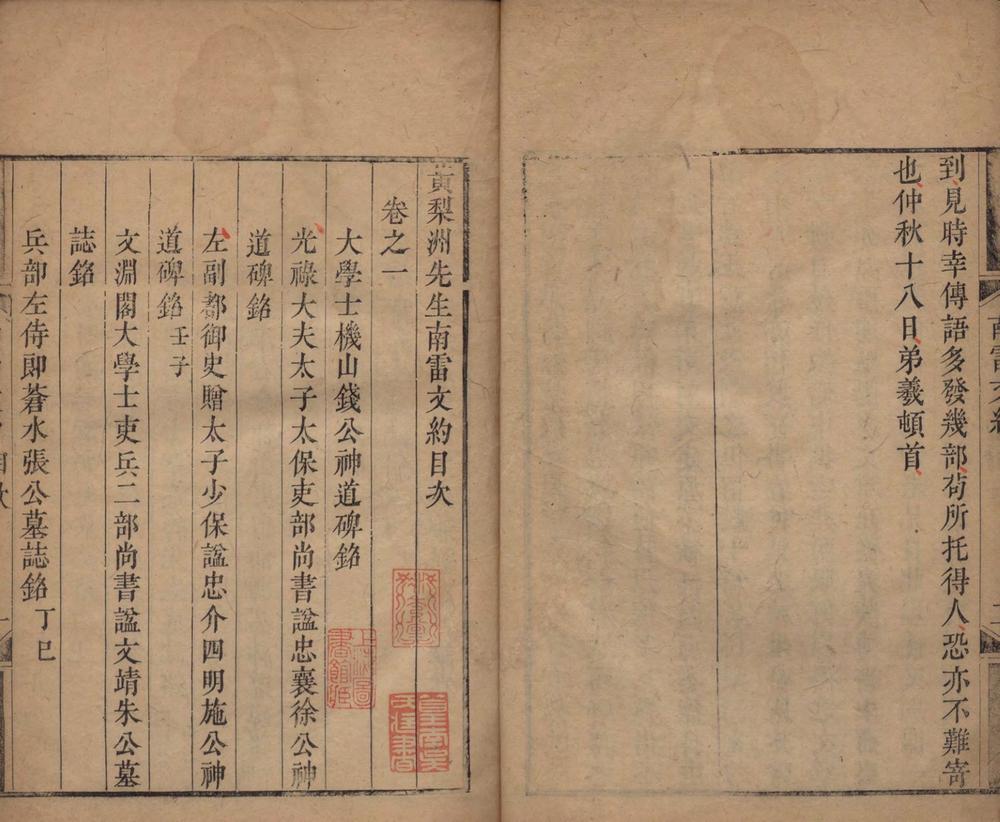 到見時幸傳語多發幾部苟所托得人恐亦不難寄
也仲秋十八日弟羲頓首
黃梨洲先生南雷文約目次
卷之一
大學士機山錢公神道碑銘
光祿大夫太子太保吏部尚書諡忠襄徐公神
道碑銘
左副都御史贈太子少保諡忠介四明施公神
道碑銘 壬子
文淵閣大學士吏兵二部尚書諡文靖朱公墓
誌銘
兵部左侍郎蒼水張公墓誌銘 丁巳
上海圖
書館臧